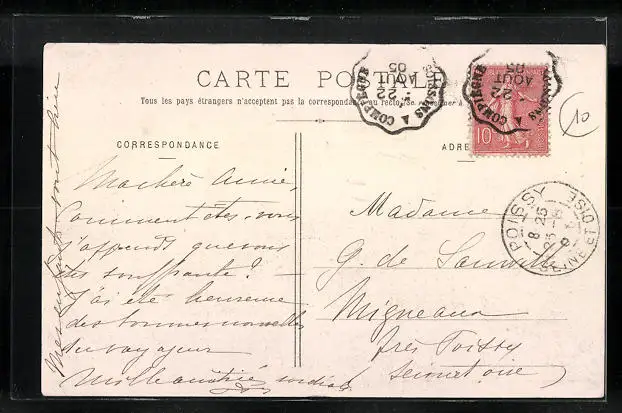 CARTE POSTALE
Tous les pays étrangers n'acceptent pas la correspondance au recto.
CORRESPONDANCE
ADRE
Ma chère amie,
Comment êtes-vous
j'apprends que vous
êtes souffrante?
J'ai été heureuse
des bonnes nouvelles
du voyageur
Mille amitiés
Mes enfants vont bien
Madame
G. de
Migneaux
près Poissy
Seine et oise
10
22
AOUT
05
COMPIEGNE
22
AOUT
05
COMPIEGNE
POISSY
8 25
25-8
05
SNE-ET-OISE
10